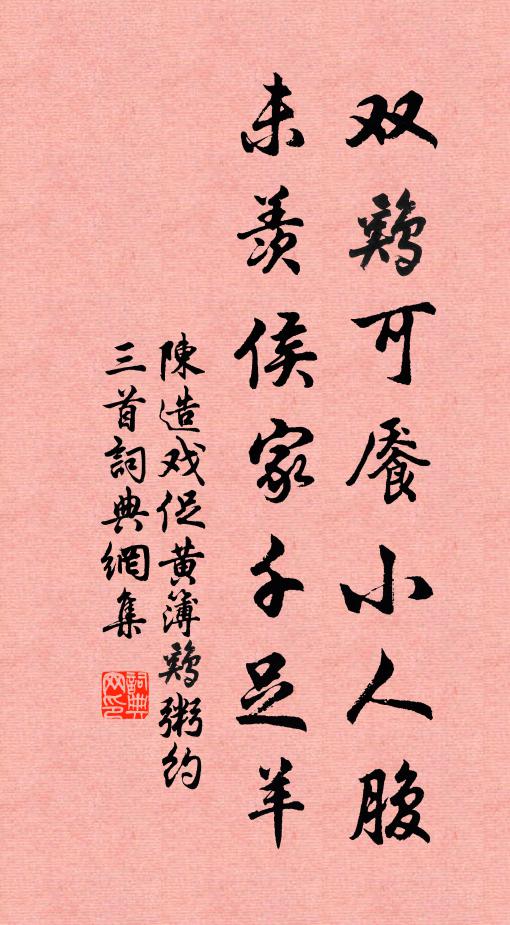 双鷄可饜小人腹
未羨侯家千足羊
陳造戏促黄簿鷄粥约
三首詞典網集
詞典
网印